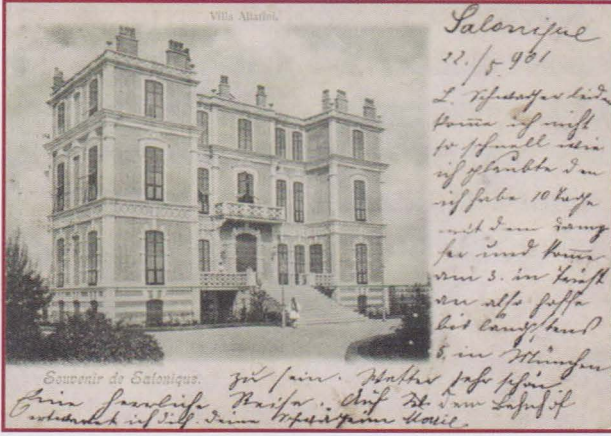 Villa Allatini.
Salonique
22./5. 901
L. Schwager leider
komme ich nicht
so schnell wie
ich glaubte den
ich habe 10 Tage
mit dem Damp
fer und komme
am 3. in Triest
an also hoffe
bis längstens
5. in München
Souvenir de Salonique.
zu sein. Wetter sehr schön
Eine herrliche Reise. Auf dem Bahnhof
erwartet ich dich. deine Schwägerin Marie